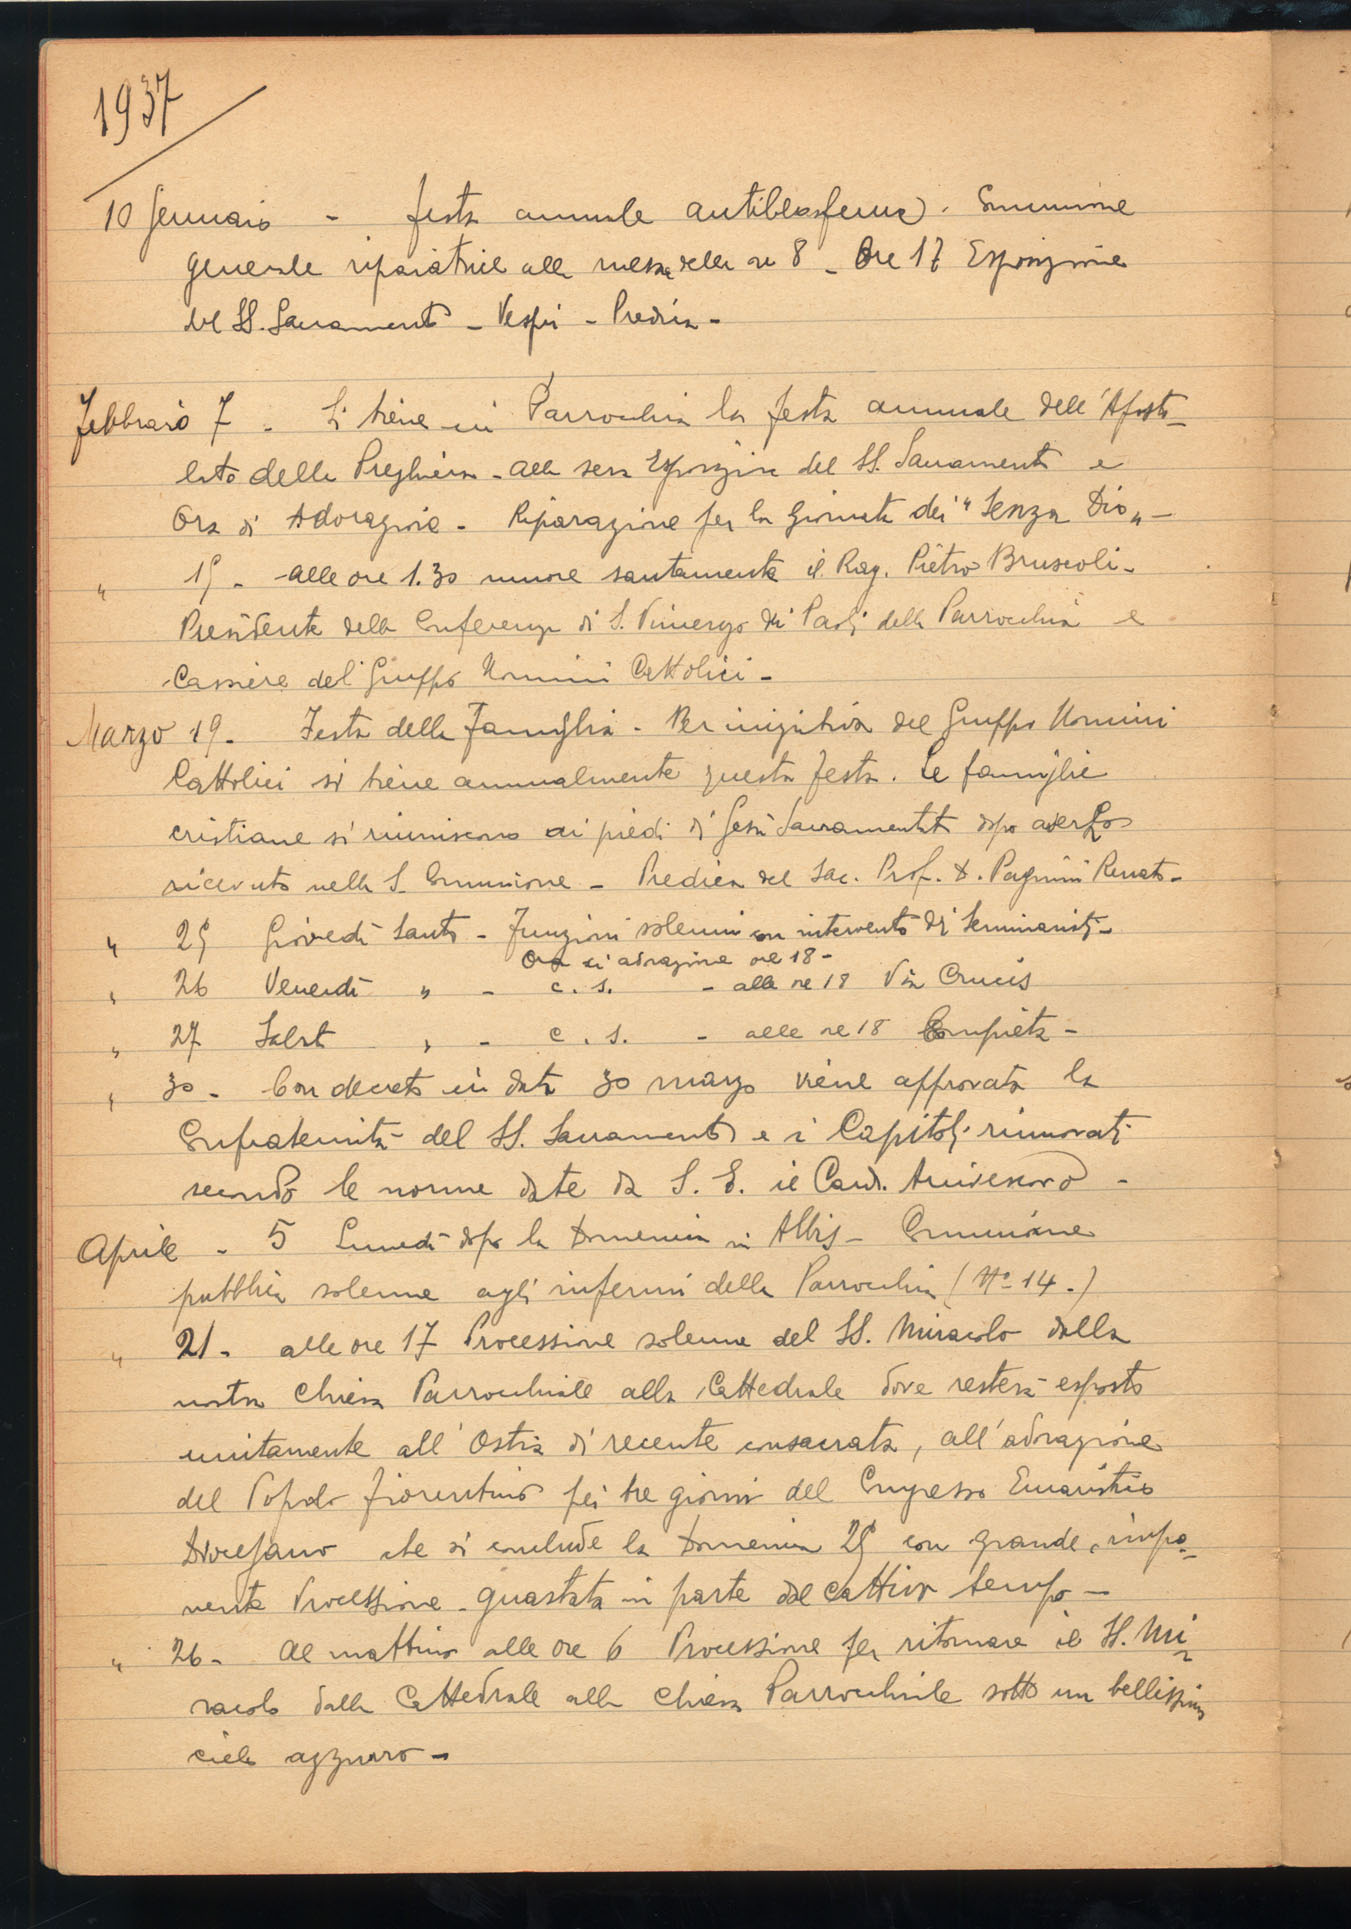 1937
10 Gennaio - festa annuale antiblasfema. Comunione
generale riparatrice alla messa delle ore 8 - Ore 17 Esposizione
del SS. Sacramento - Vespri - Predica -
Febbraio 7 - Si tiene in Parrocchia la festa annuale dell'Aposto-
lato della Preghiera - alla sera Esposizione del SS. Sacramento e
Ora di Adorazione - Riparazione per la Giornata dei "Senza Dio" -
" 15 - alle ore 1.30 muore santamente il Rag. Pietro Bruscoli -
Presidente della Conferenza di S. Vincenzo de' Paoli della Parrocchia e
Cassiere del Gruppo Uomini Cattolici -
Marzo 19 - Festa della Famiglia - Per iniziativa del Gruppo Uomini
Cattolici si tiene annualmente questa festa. Le famiglie
cristiane si riuniscono ai piedi di Gesù Sacramentato dopo averlo
ricevuto nella S. Comunione - Predica del Sac. Prof. D. Pagnini Renato -
" 25 Giovedì Santo - Funzioni solenni con intervento di Seminaristi -
Ora di adorazione ore 18 -
" 26 Venerdì " - c. s. - alle ore 18 Via Crucis
" 27 Sabato " - c. s. - alle ore 18 Compieta -
" 30 - Con decreto in data 30 marzo viene approvata la
Confraternita del SS. Sacramento e i Capitoli rinnovati
secondo le norme date da S. E. il Card. Arcivescovo -
Aprile - 5 Lunedì dopo la Domenica in Albis - Comunione
pubblica solenne agli infermi della Parrocchia (No 14.)
" 21 - alle ore 17 Processione solenne del SS. Miracolo dalla
nostra Chiesa Parrocchiale alla Cattedrale dove resterà esposto
unitamente all'Ostia di recente consacrata, all'adorazione
del Popolo fiorentino pei tre giorni del Congresso Eucaristico
Diocesano che si conclude la Domenica 25 con grande, impo-
nente Processione - guastata in parte dal cattivo tempo -
" 26 - Al mattino alle ore 6 Processione per ritornare il SS. Mi-
racolo dalla Cattedrale alla Chiesa Parrocchiale sotto un bellissimo
cielo azzurro -